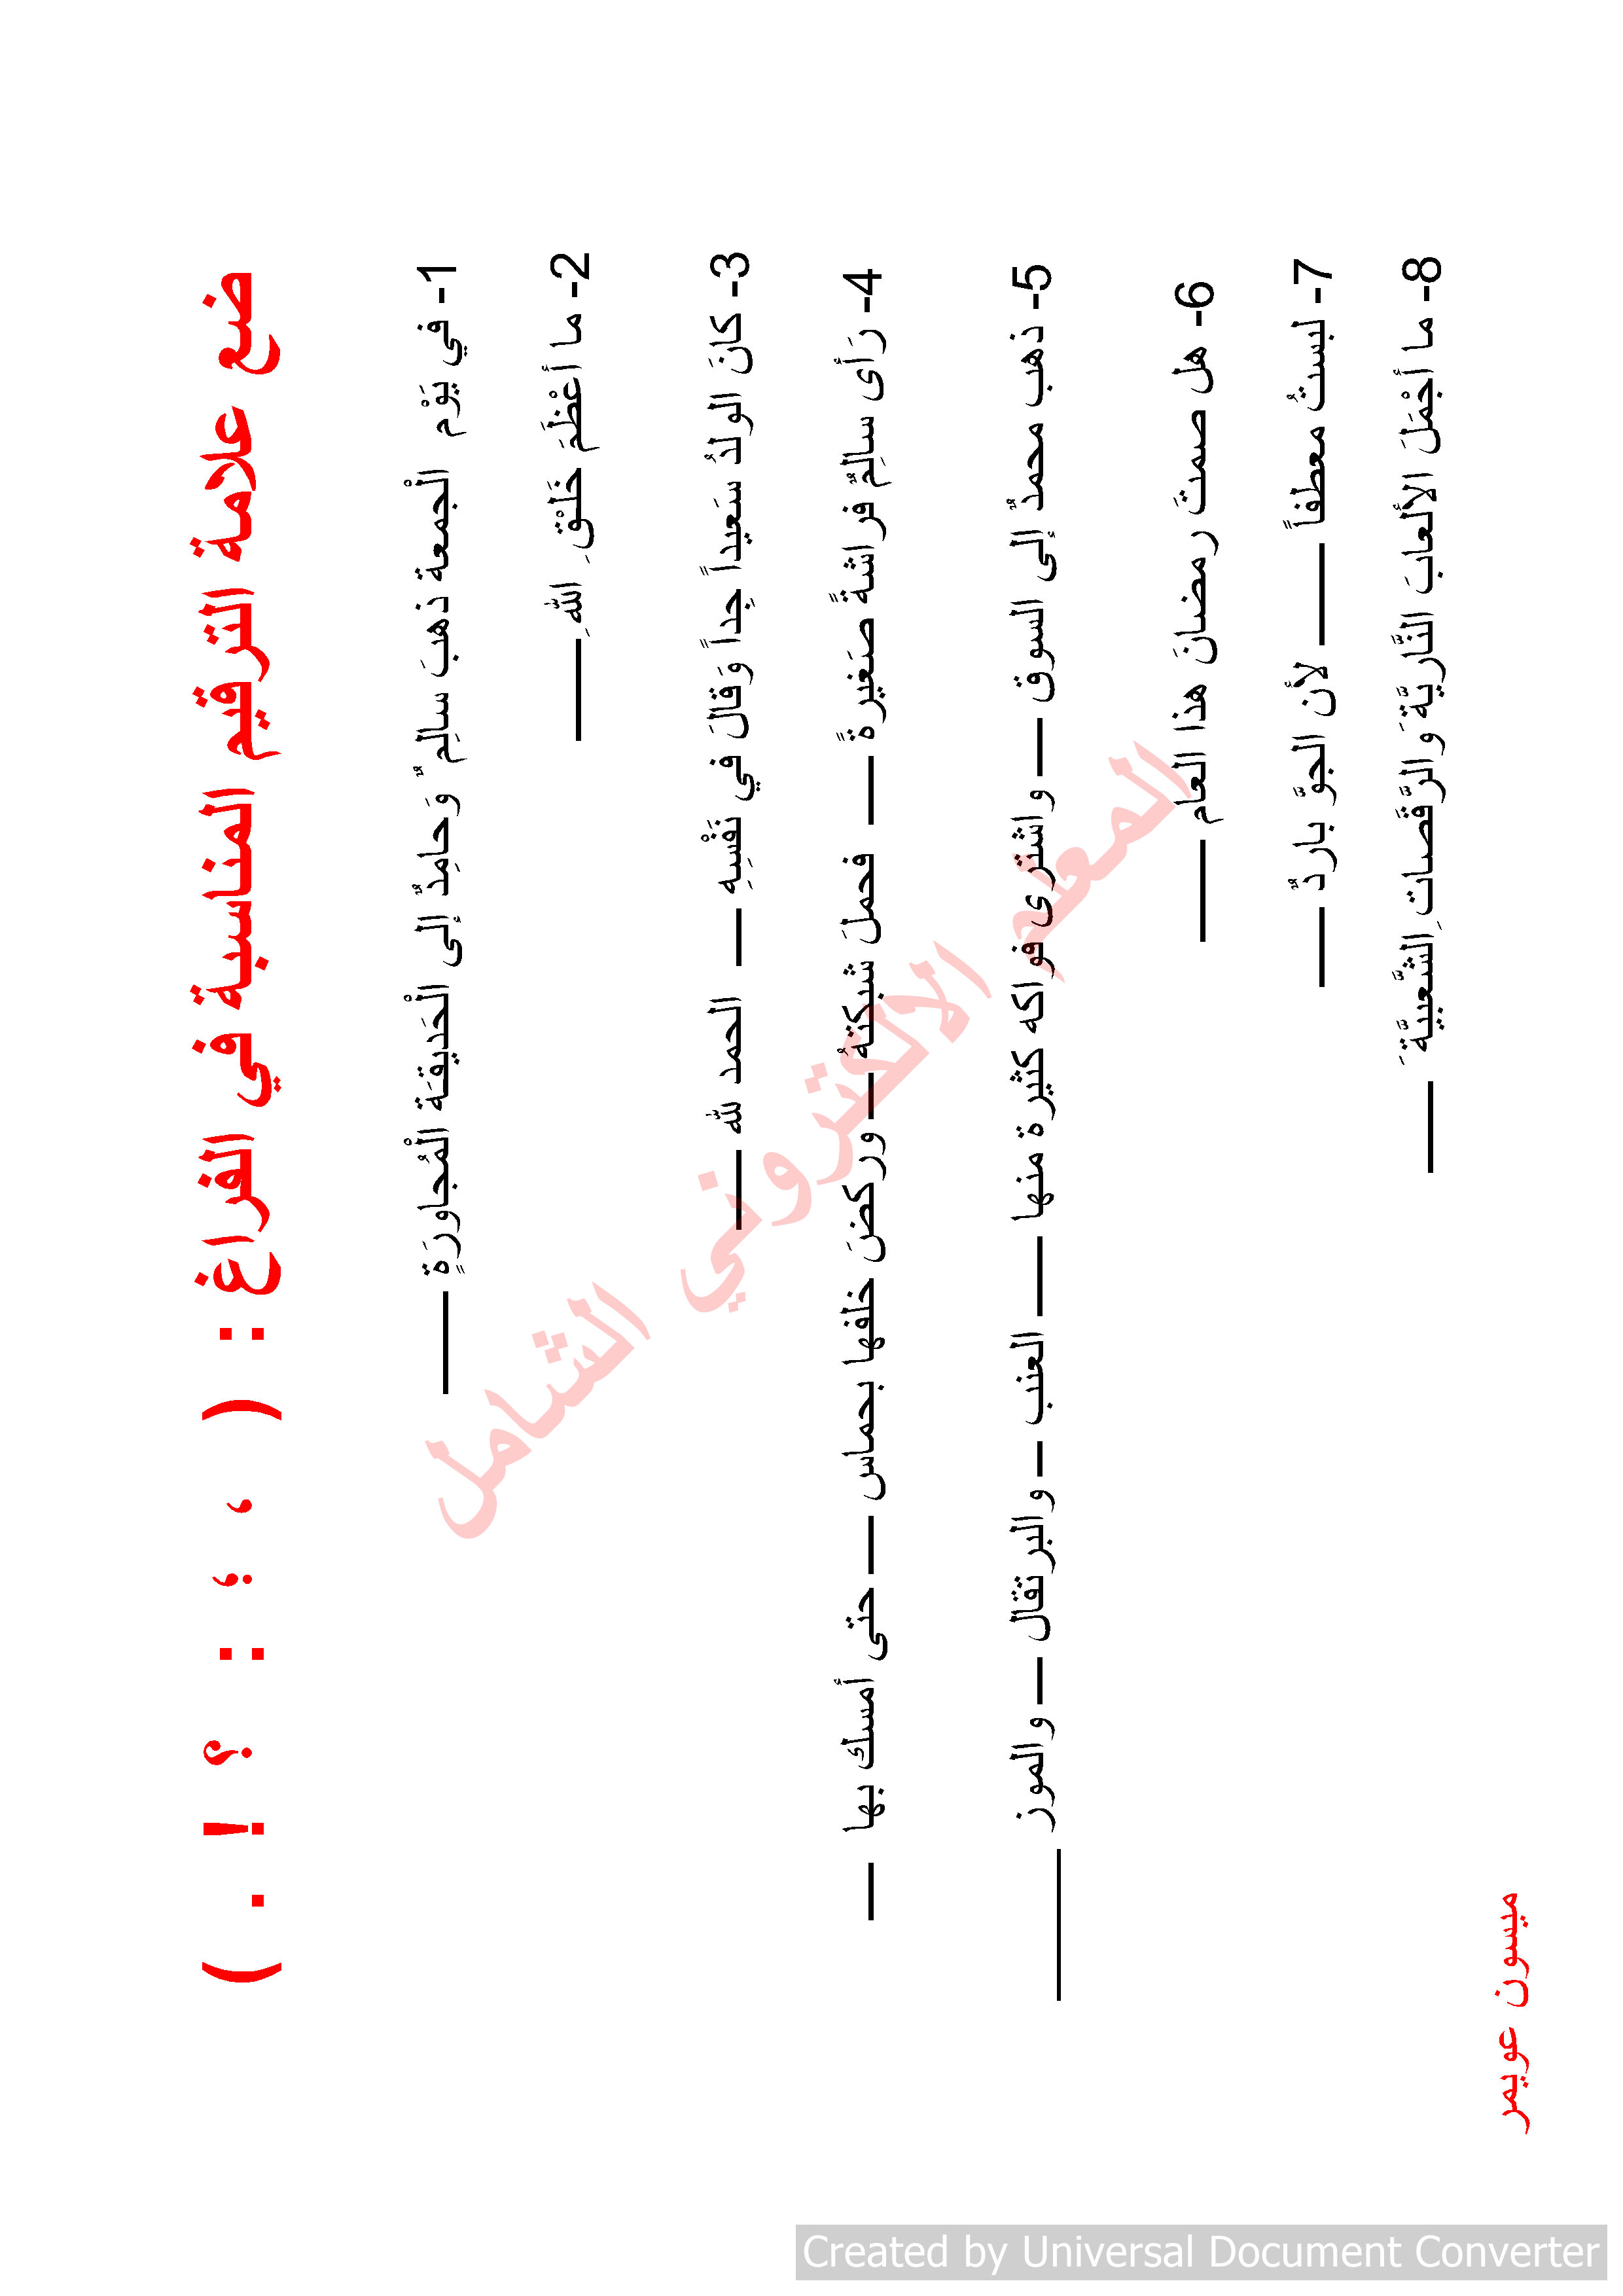 ضع علامة الترقيم المناسبة في الفراغ : ( ، ؛ : ؟ ! . )
1- في يَوْم الْجمعة ذهبَ سالِمٌ وَحامِدٌ إلى الْحَديقَة الْمُجاورَةٍ ــــــ
2- ما أعْظَمَ خَلْقِ اللهِ ــــــ
3- كانَ الولدُ سَعيداً جِداً وَقالَ في نَفْسِهِ ـــــ الحمد لله ـــــ
4- رَأى سالِمٌ فراشةً صَغيرةً ـــــ فحملَ شبكتهُ ـــــ وركضَ خلفها بحماس ـــــ حتى أمسك بها ـــــ
5- ذهب محمدٌ إلى السوق ـــــ واشترى فواكه كثيرة منها ـــــ العنب ـــــ والبرتقال ـــــ والموز
ــــــــــ
6- هل صمتَ رمضانَ هذا العام ــــــ
7- لبستُ معطفاً ــــــ لأن الجوَّ باردٌ ـــــ
8- ما أجْمَلَ الألعابَ النَّاريَّةَ وَالرَّقَصاتِ الشَّعبيَّةَ ـــــ
المعلم الالكتروني الشامل
ميسون عويمر
Created by Universal Document Converter